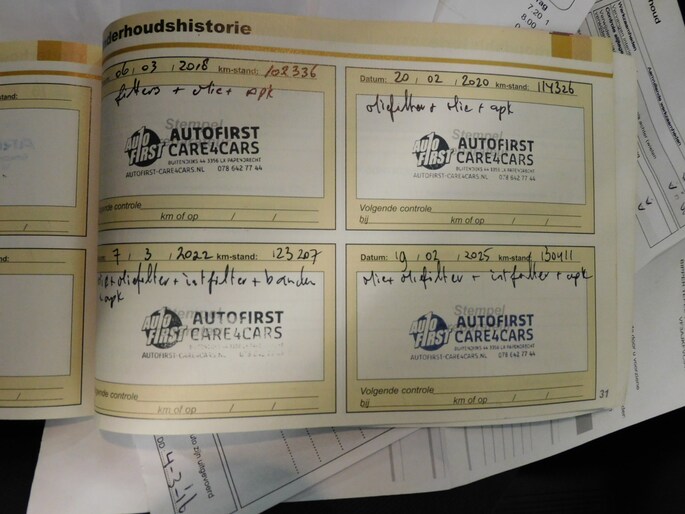 nderhoudshistorie
06 / 03 / 2018 km-stand: 102336
filters + olie + apk
Stempel
AUTO FIRST
AUTOFIRST
CARE4CARS
BUITENDIJKS 44 3356 LX PAPENDRECHT
AUTOFIRST-CARE4CARS.NL 078 642 77 44
Volgende controle
km of op / /
Datum: 20 / 02 / 2020 km-stand: 114326
oliefilter + olie + apk
Stempel
AUTO FIRST
AUTOFIRST
CARE4CARS
BUITENDIJKS 44 3356 LX PAPENDRECHT
AUTOFIRST-CARE4CARS.NL 078 642 77 44
Volgende controle
bij km of op / /
7 / 3 / 2022 km-stand: 123207
+ oliefilter + intfilter + banden
+ apk
Stempel
AUTO FIRST
AUTOFIRST
CARE4CARS
AUTOFIRST-CARE4CARS.NL
gende controle
km of op / /
Datum: 19 / 02 / 2025 km-stand: 130411
olie + oliefilter + intfilter + apk
Stempel
AUTO FIRST
AUTOFIRST
CARE4CARS
BUITENDIJKS 44 3356 LX PAPENDRECHT
AUTOFIRST-CARE4CARS.NL 078 642 77 44
Volgende controle
bij km of op / /
31
stand:
7.20
8.00
houd
4-3-16